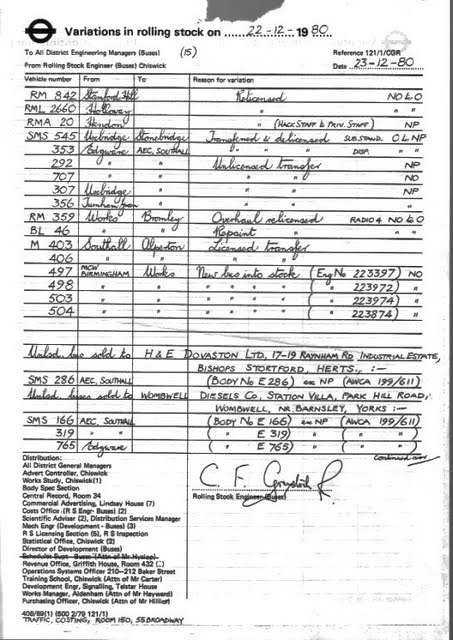 Variations in rolling stock on 22-12-1980
To All District Engineering Managers (Buses) (15) Reference 121/1/CGR
From Rolling Stock Engineer (Buses) Chiswick Date 23-12-80
Vehicle number From To Reason for variation
RM 842 Stamford Hill Relicensed NO to O
RML 2660 Holloway " " "
RMA 20 Hendon " (HACK STAFF & PRIV. STAFF) NP
SMS 545 Uxbridge Stonebridge Transferred & delicensed SUB STAND. O to NP
353 Edgware AEC, SOUTHALL " " " DISP. " "
292 " " Unlicensed transfer NP
707 " " " " NO
307 Uxbridge " " " NP
356 Turnham Green " " " "
RM 359 Works Bromley Overhaul relicensed RADIO 4 NO to O
BL 46 " " Repaint " " "
M 403 Southall Alperton Licensed transfer
406 " " " "
497 MCW BIRMINGHAM Works New bus into stock (Eng No 223397) NO
498 " " " " " " ( " 223972) "
503 " " " " " " ( " 223974) "
504 " " " " " " ( " 223874) "
Unlsd. bus sold to H & E DOVASTON LTD, 17-19 RAYNHAM RD INDUSTRIAL ESTATE,
BISHOPS STORTFORD, HERTS., :—
SMS 286 AEC, SOUTHALL (BODY No E 286) ex NP (AWCA 199/611)
Unlsd. buses sold to WOMBWELL DIESELS CO, STATION VILLA, PARK HILL ROAD,
WOMBWELL, NR. BARNSLEY, YORKS :—
SMS 166 AEC, SOUTHALL (BODY No E 166) ex NP (AWCA 199/611)
319 " " ( " E 319) " " ( " )
765 Edgware ( " E 765) " " ( " )
continued over
Distribution:
All District General Managers
Advert Controller, Chiswick
Works Study, Chiswick(1)
Body Spec Section
Central Record, Room 34
Commercial Advertising, Lindsay House (7)
Costs Office (R S Engr- Buses) (2)
Scientific Adviser (2), Distribution Services Manager
Mech Engr (Development - Buses) (3)
R S Licensing Section (5), R S Inspection
Statistical Office, Chiswick (2)
Director of Development (Buses)
Schedules Supt- Buses (Attn of Mr Hyslop)
Revenue Office, Griffith House, Room 432
Operations Systems Officer 210-212 Baker Street
Training School, Chiswick (Attn of Mr Carter)
Development Engr, Signalling, Telstar House
Works Manager, Aldenham (Attn of Mr Hayward)
Purchasing Officer, Chiswick (Attn of Mr Hillier)
C. F.
Rolling Stock Engineer (Buses)
408/69(1) (500 2/79 121/1)
TRAFFIC, COSTING, ROOM 150, 55 BROADWAY